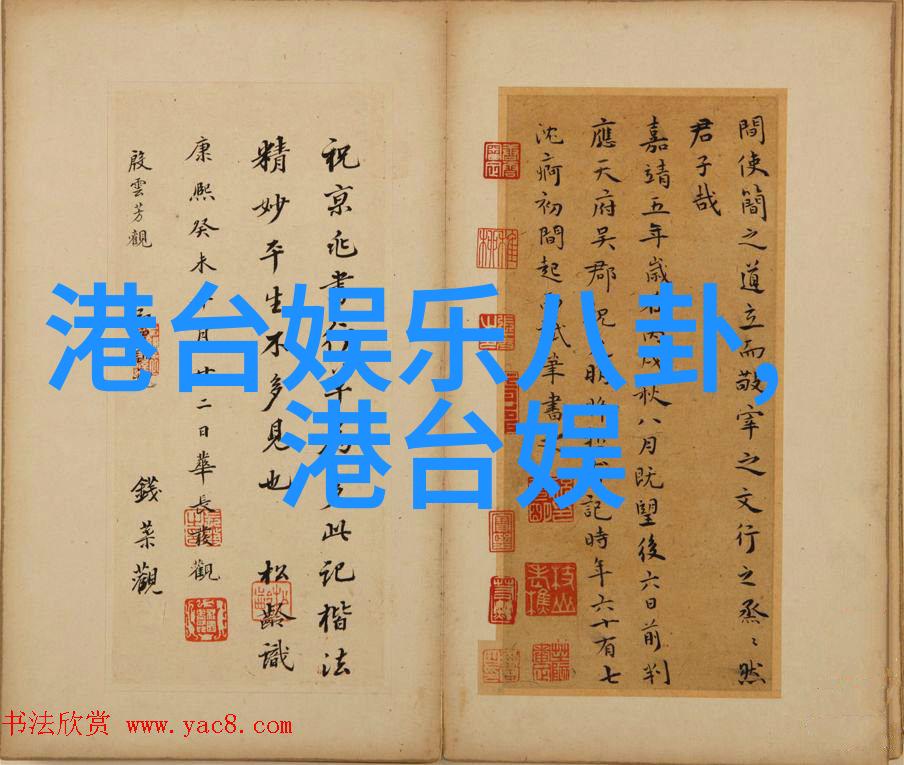 間使簡之道立而敬宰之文行之烝〻然
君子哉
嘉靖五年歲在丙戌秋八月既望後六日前判
應天府吳郡祝允明
記時年六十有七
沈痾初間起而試筆書
祝京兆書行草
此記楷法
精妙平生不多見也 松齡識
康熙癸未
月廿二日華長發觀
殷雲芳觀
錢棻觀
港台娱乐八卦,
港台娱
书法欣赏 www.yac8.com